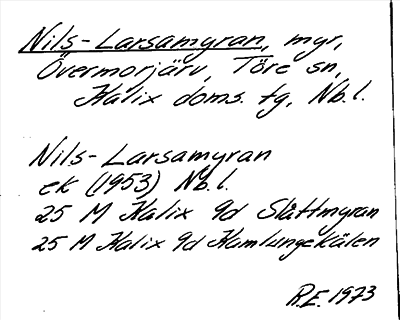 Nils-Larsamyran, myr,
Övermorjärv, Töre sn,
Kalix doms. tg, Nb.l.
Nils-Larsamyran
ek (1953) Nb.l.
25 M Kalix 9d Slåttmyran
25 M Kalix 9d Kamlungekälen
R.E. 1973